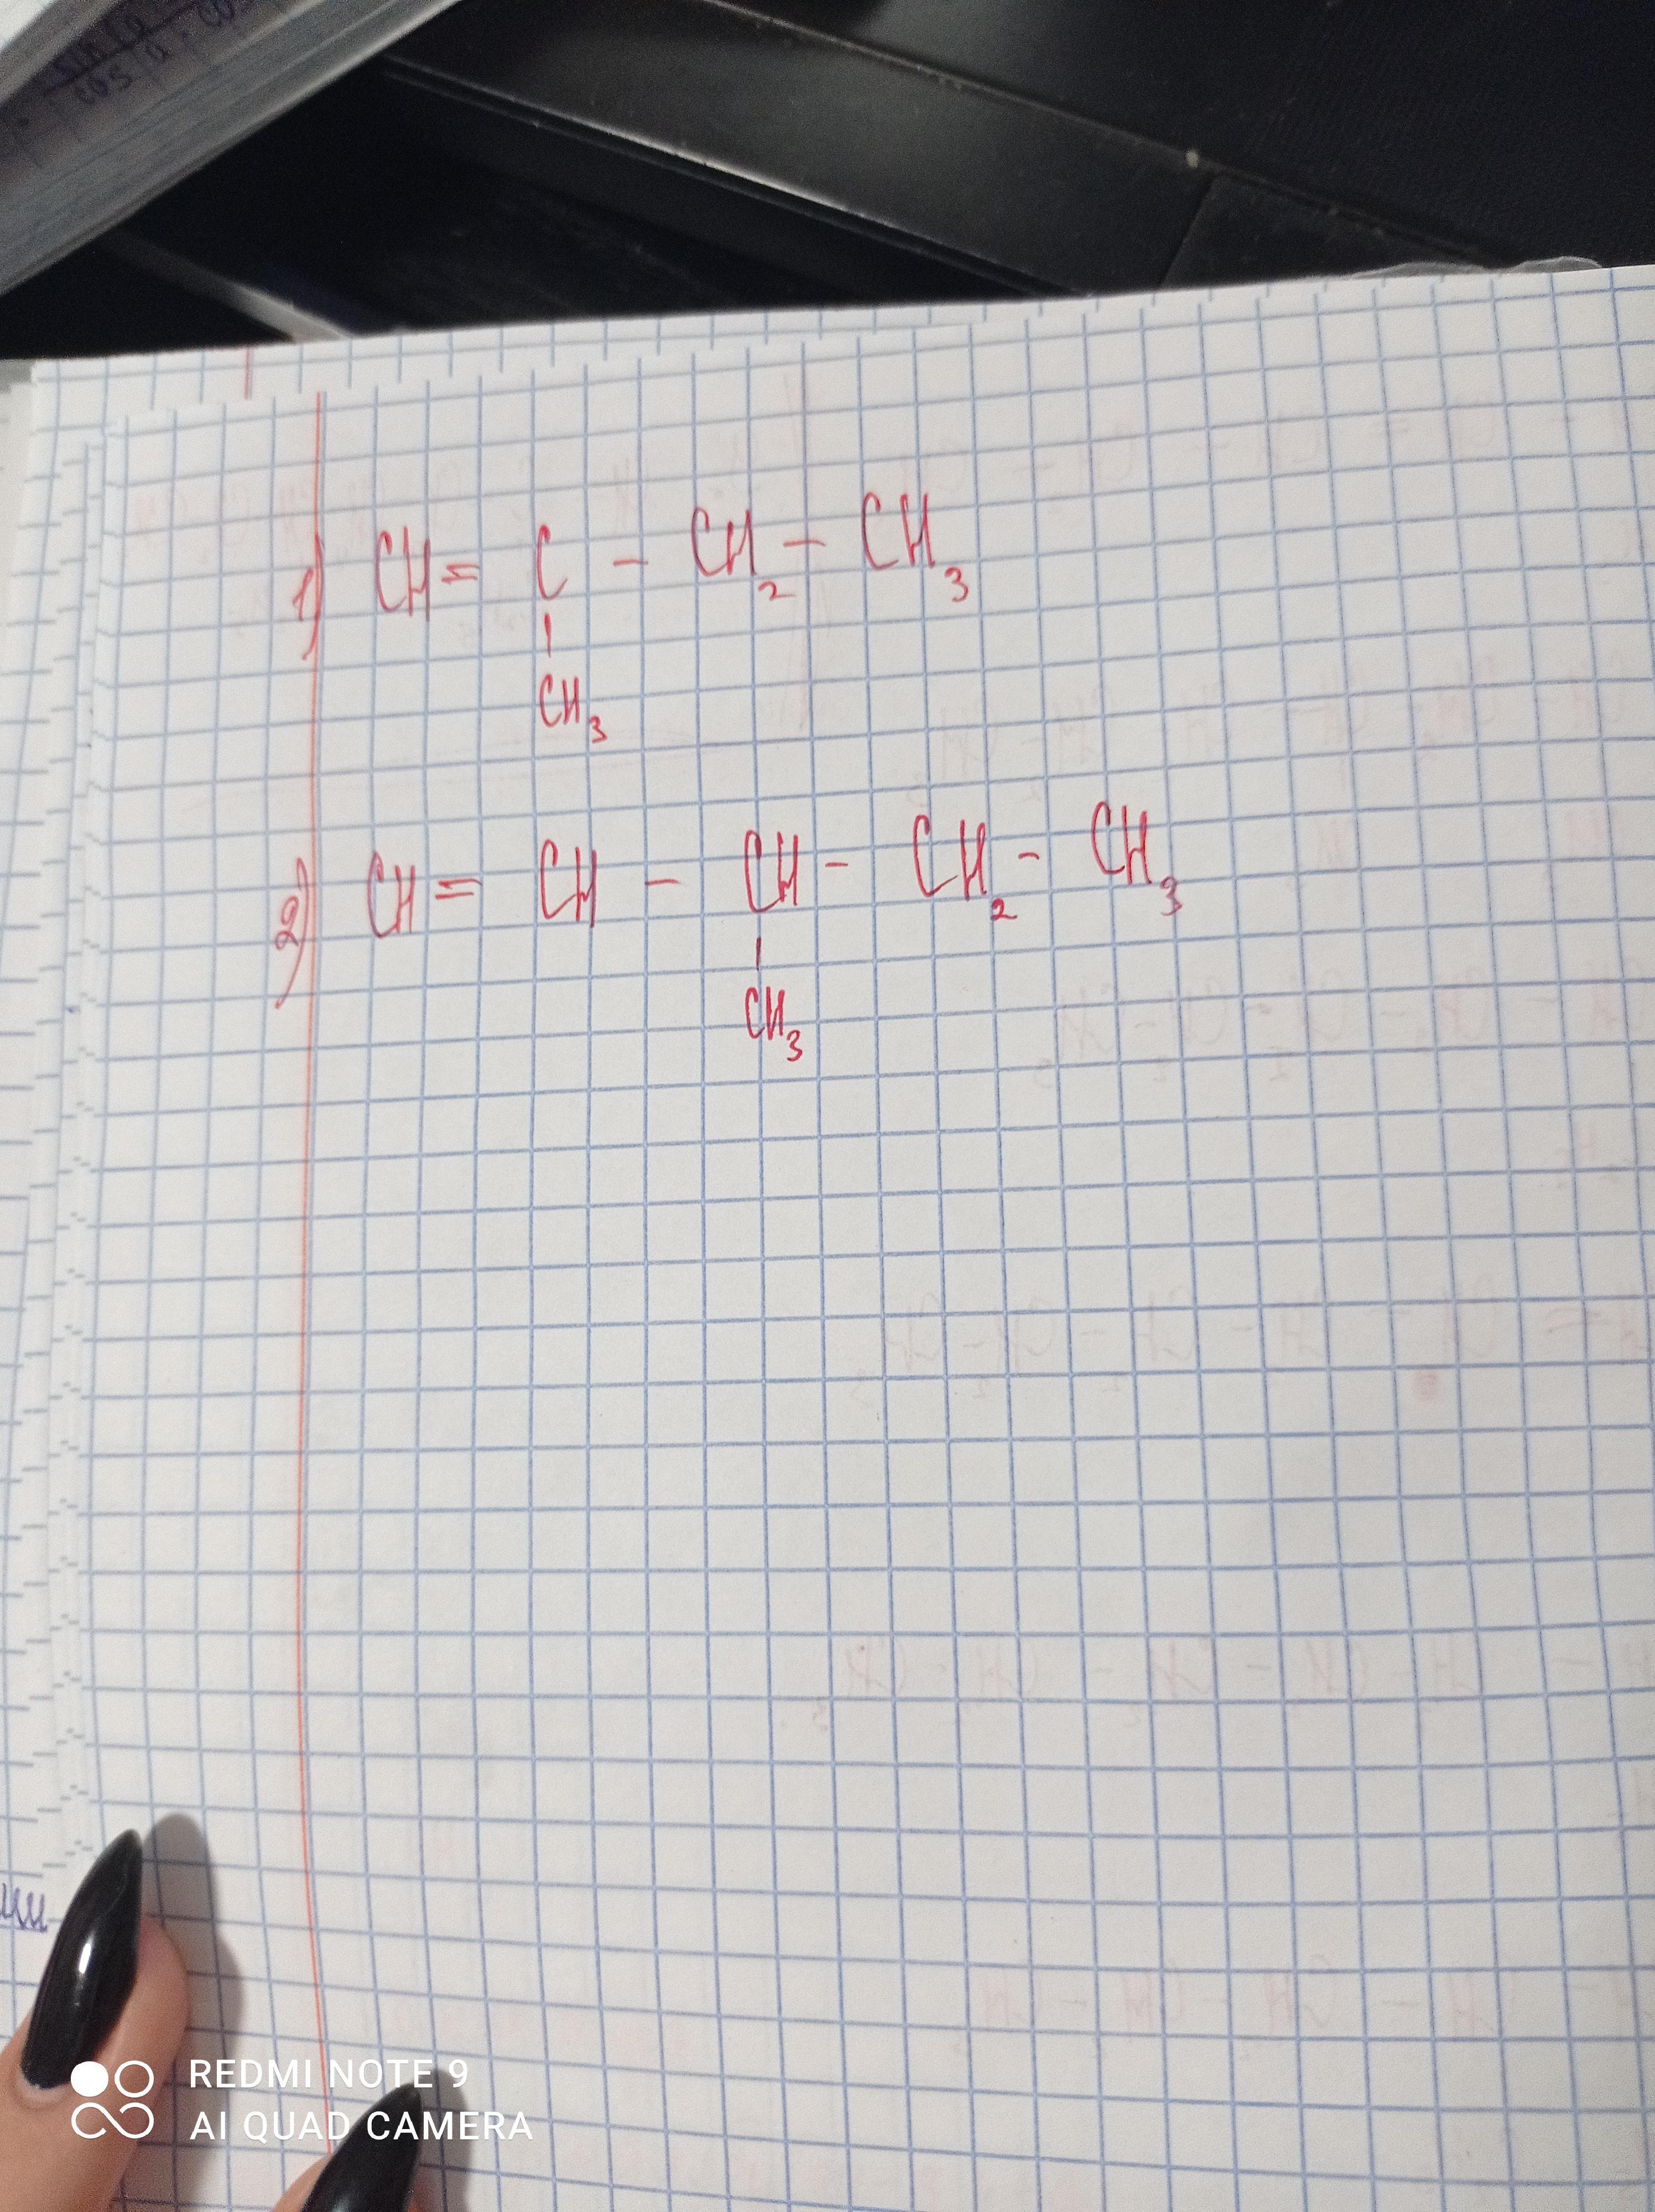 sin α
cos α
1) CH = C - CH2 - CH3
CH3
2) CH = CH - CH - CH2 - CH3
CH3
REDMI NOTE 9
AI QUAD CAMERA